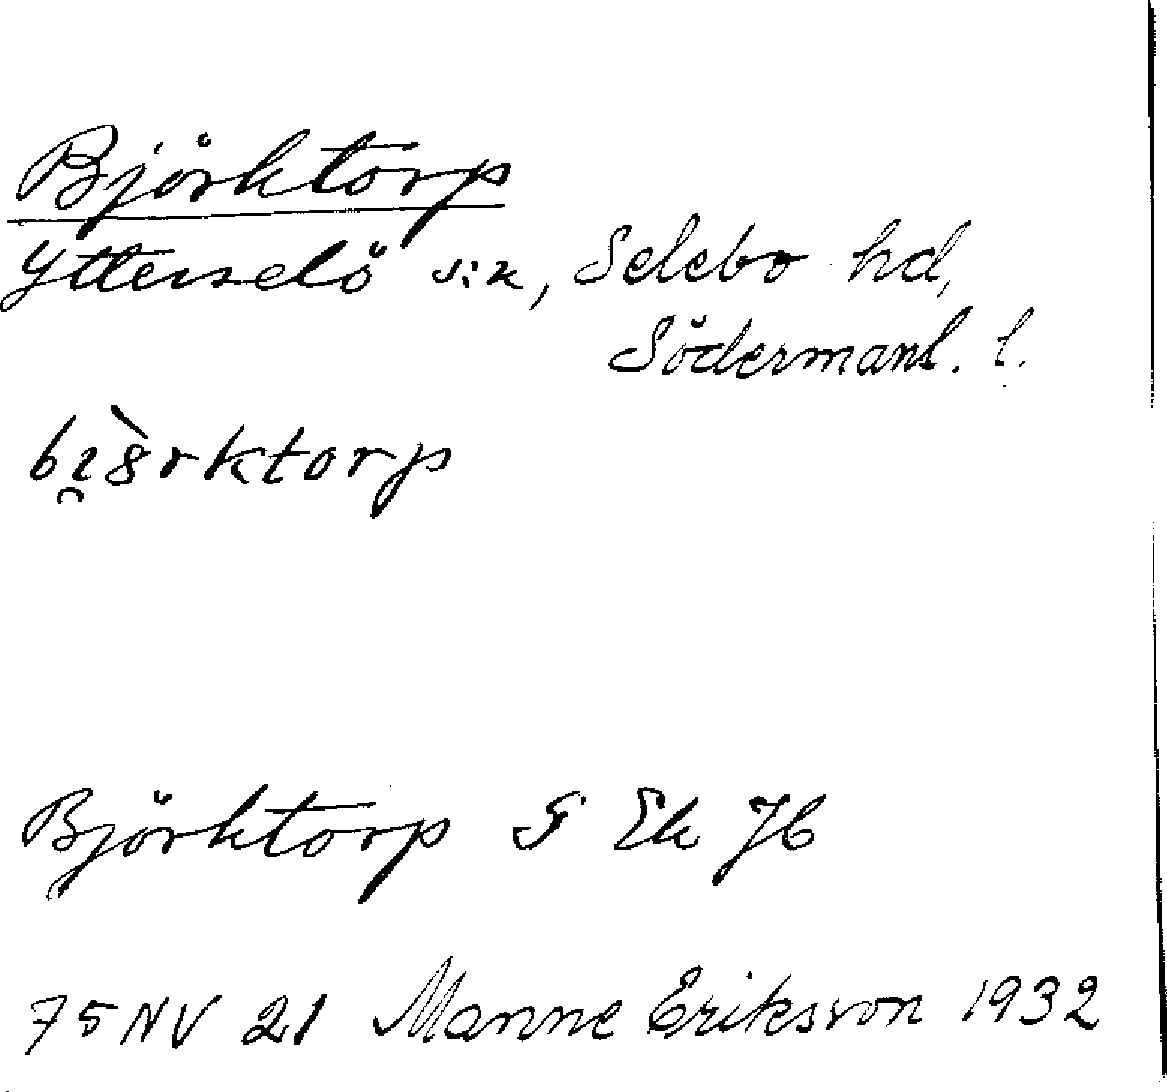 Björktorp
Ytterselö sn, Selebo hd,
Södermanl. l.
bi̯ȍrktorp
Björktorp G Ek Jb
75 NV 21 Manne Eriksson 1932